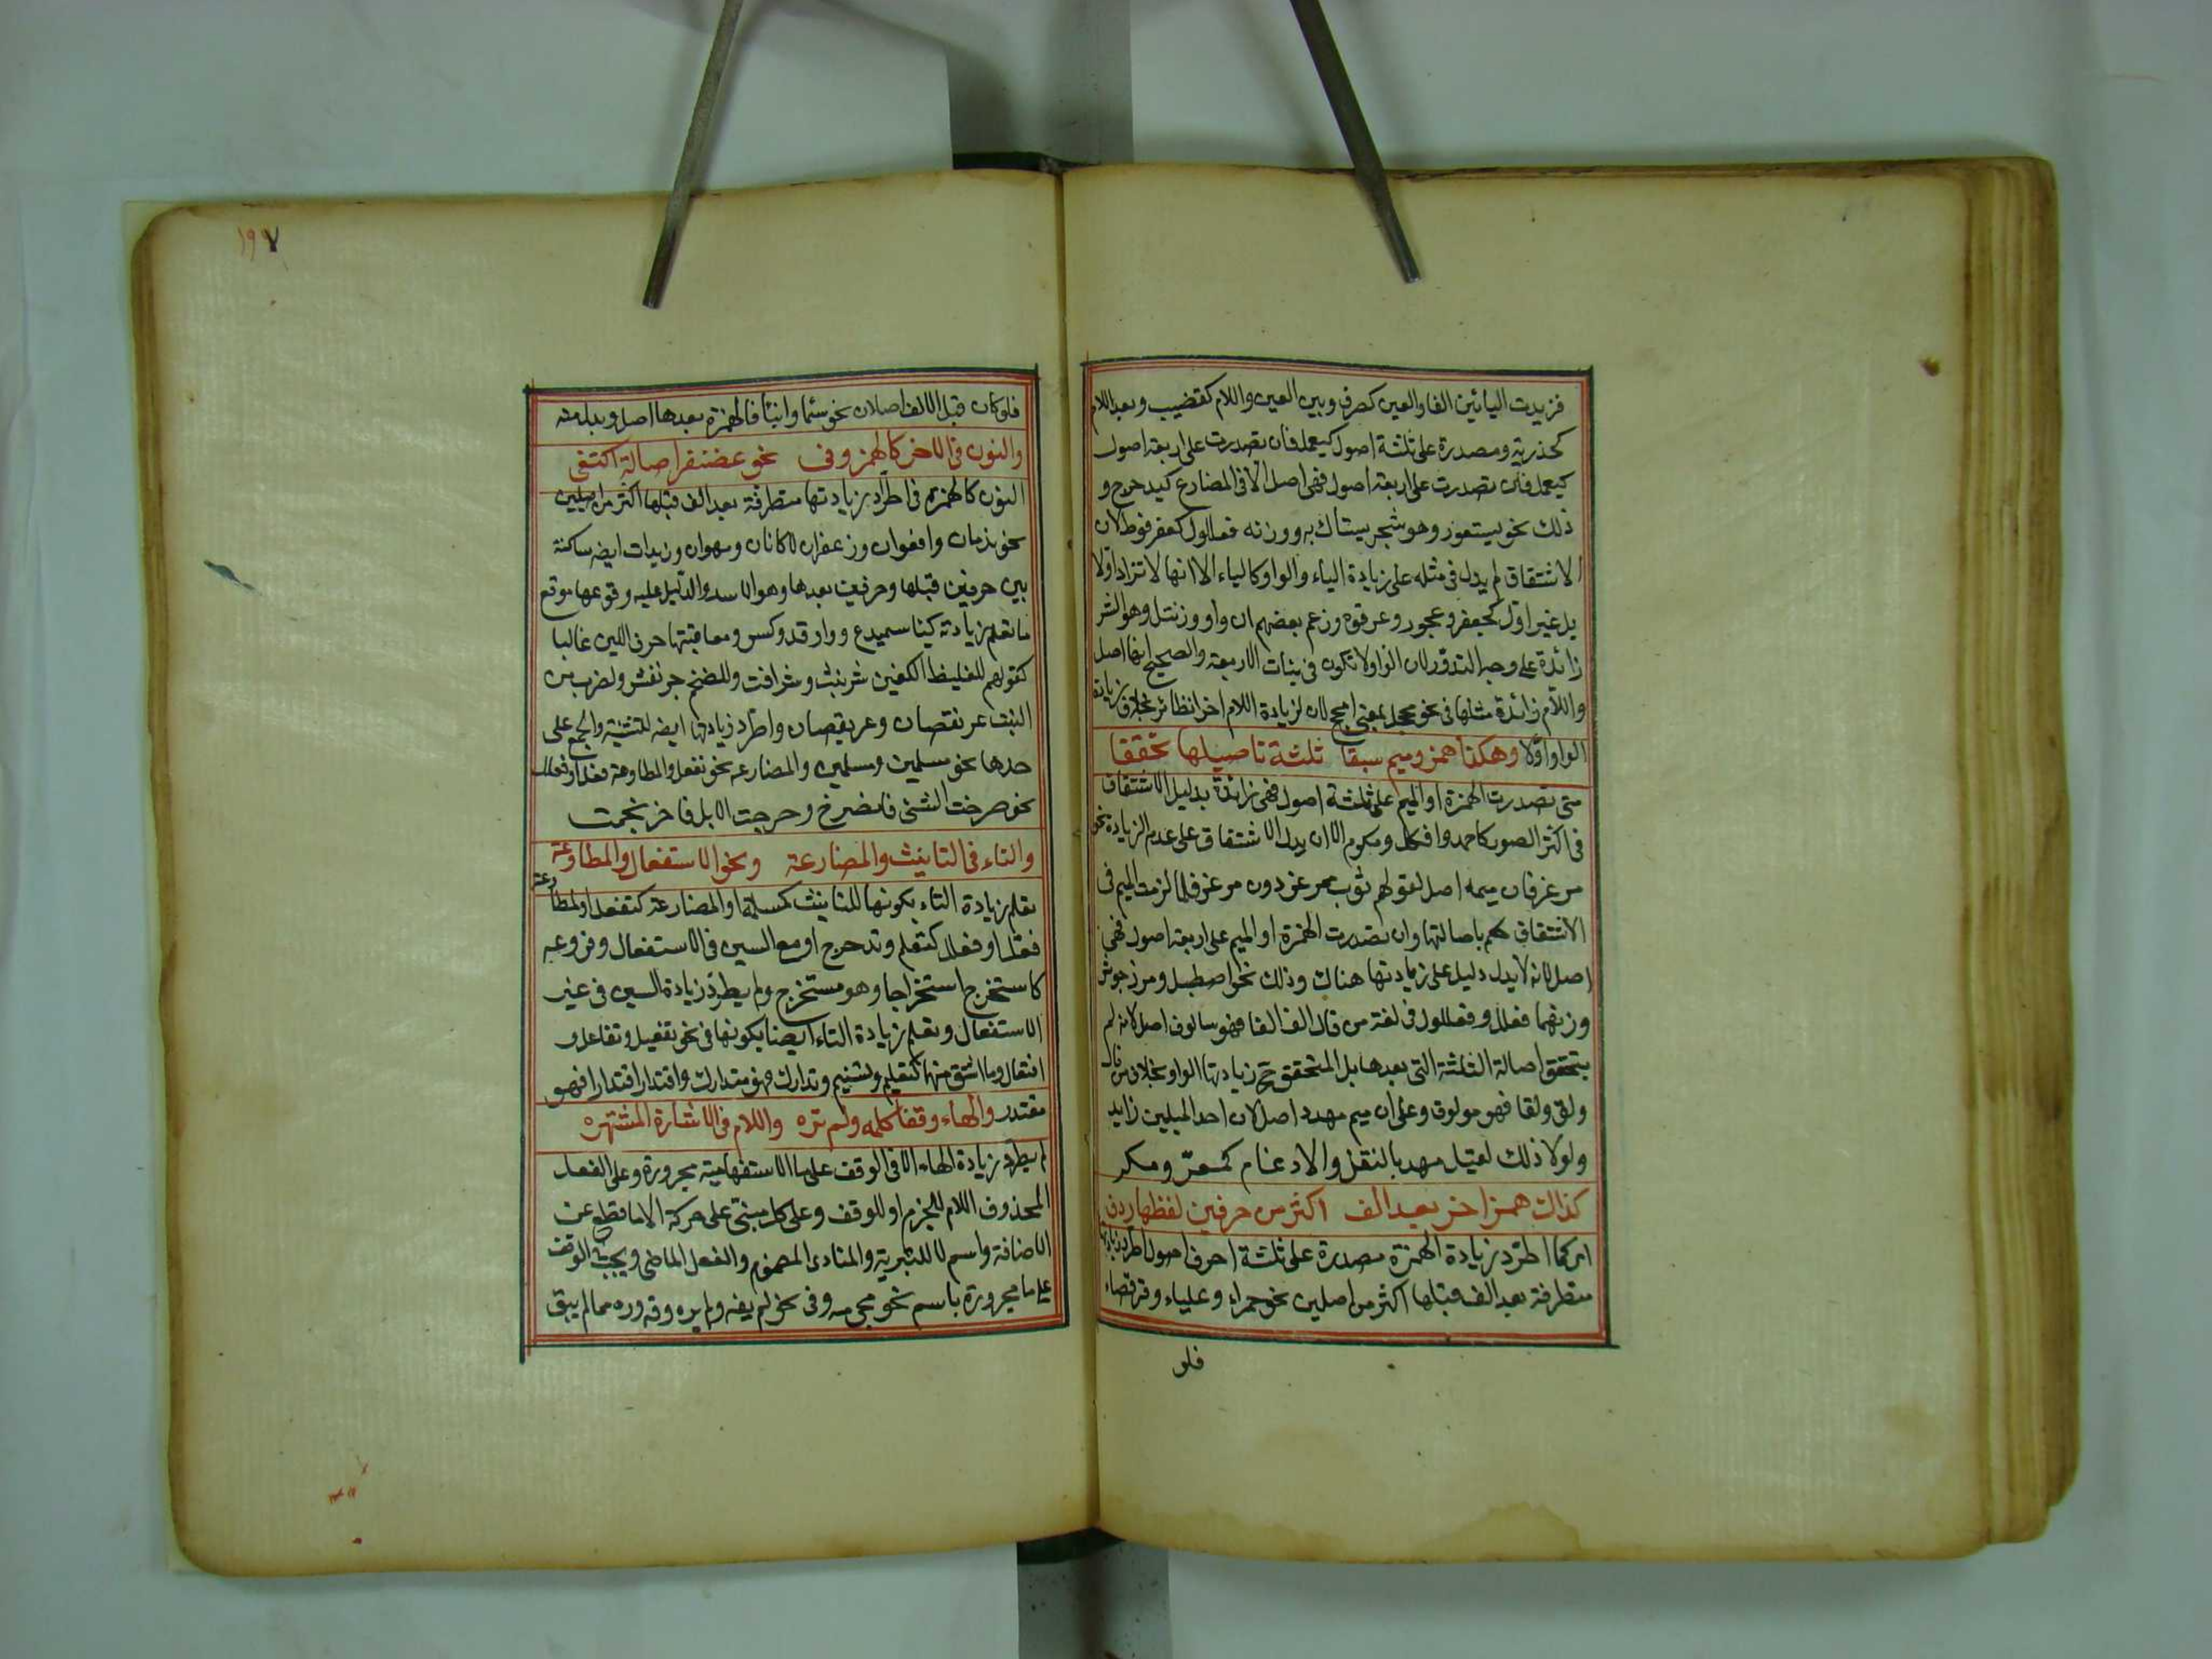 فزيدت اليائين الفا والعين كصرف وبين العين واللام كقضيب وبعد اللام
كحذرية ومصدرة على ثلثة اصول كيعمل فان تصدرت على اربعة اصول
كيعمل فان تصدرت على اربعة اصول فهي اصل الا في المضارع كيدحرج و
ذلك نحو يستعور وهو شجر يستاك به ووزنه فعللول كعضرفوط لان
الاشتقاق لم يدل في مثله على زيادة الياء والواو كالياء الا انها لا تزاد اولا
بل غير اول كجعفر وعجوز وعرقوة وزعم بعضهم ان واو ورنتل وهو الشر
زائدة على وجه الندور لان الواو لا تكون في بنات الاربعة والصحيح انها اصل
واللام زائدة مثلها في نحو فحجل بمعنى افحج لان لزيادة اللام اخرا نظائر بخلاف زيادة
الواو اولا وهكذا همز وميم سبقا ثلثة تاصيلها تحققا
متى تصدرت الهمزة او الميم على ثلثة اصول فهي زائدة بدليل الاشتقاق
في اكثر الصور كاحمد وافكل ومكرم الا ان يدل الاشتقاق على عدم الزيادة نحو
مرعز فان ميمه اصل لقولهم ثوب ممرعز دون مرعز فلما لزمت الميم في
الاشتقاق حكم باصالتها وان تصدرت الهمزة او الميم على اربعة اصول فهي
اصل لانه لا يدل دليل على زيادتها هناك وذلك نحو اصطبل ومرزجوش
وزنهما فعلل وفعللول في لغة من قال الف الفا فهو سالوف اصل لانه لم
يتحقق اصالة الثلثة التي بعدها بل المتحقق ح زيادتها الواو بخلاف من قال
ولق ولقا فهو مولوق وعلى ان ميم مهدد اصل لان احد المثلين زايد
ولولا ذلك لقيل مهد بالنقل والادغام كمعر ومكر
كذاك همز اخر بعد الف اكثر من حرفين لفظها ردف
اي كما اطرد زيادة الهمزة مصدرة على ثلثة احرف اصول اطرد زيادتها
متطرفة بعد الف قبلها اكثر من اصلين نحو حمراء وعلياء وقرفصاء
فلو
١٩٧
فلو كان قبل الالف اصلان نحو سما وابنا فالهمزة بعدها اصل وبدل منه
والنون في الاخر كالهمز وفى نحو غضنفر اصالة اكتفى
النون كالهمزة في اطراد زيادتها متطرفة بعد الف قبلها اكثر من اصلين
نحو ندمان وافعوان وزعفران لا كانان ومهوان وزيدات ايضه ساكنة
بين حرفين قبلها وحرفين بعدها وهو الاسد والدليل عليه وقوعها موقع
ما تعلم زيادته كيا سميدع وواو فدوكس ومعاقبتها حرف اللين غالبا
كقولهم للغليظ الكفين شرنبث وشرابث وللضخم جرنفش ولضرب من
النبت عرنقصان وعريقصان واطرد زيادتها ايضه للتثنية والجمع على
حدها نحو مسلمين ومسلمين والمضارعه نحو نفعل والمطاوعة فعل او فعلل
نحو صرخت الشئ فانصرخ وحرجمت الابل فاحرنجمت
والتاء في التانيث والمضارعة ونحو الاستفعال والمطاوعة
تعلم زيادة التاء بكونها للتانيث كمسلمة او المضارعة كتفعل او المطاوعة
فعل او فعلل كتعلم وتدحرج او مع السين في الاستفعال وفروعه
كاستخرج استخراجا وهو مستخرج ولم يطرد زيادة السين في غير
الاستفعال وتعلم زيادة التاء ايضا بكونها في نحو تفعيل وتفاعل و
افتعال وما اشتق منها كتعليم وتسنيم وتدارك فهو متدارك واقتدار اقتدارا فهو
مقتدر والهاء وقفا كلمه ولم تره واللام في الاشارة المشتهره
لم يطرد زيادة الهاء الا في الوقف على ما الاستفهامية مجرورة وعلى الفعل
المحذوف اللام للجزم او للوقف وعلى كل مبني على حركة الا ما قطع عن
الاضافة واسم لا للتبرية والمنادى المضموم والفعل الماضي ويجب في الوقف
على ما مجرورة باسم نحو مجي مه وفي نحو لم يفه ولم يره وقه وره مما لم يبق